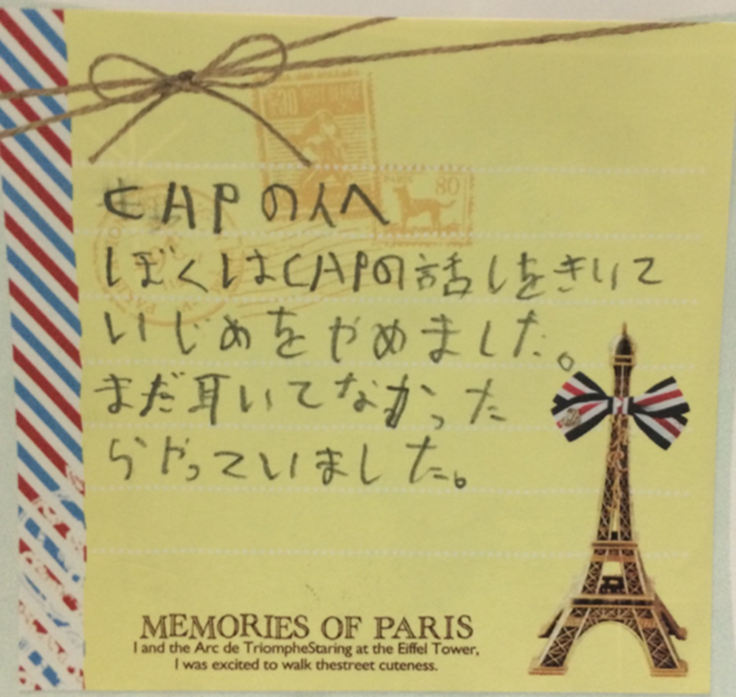 CAPの人へ
ぼくはCAPの話しをきいて
いじめをやめました。
まだ耳いてなかった
らやっていました。
80
MEMORIES OF PARIS
I and the Arc de TriompheStaring at the Eiffel Tower,
I was excited to walk thestreet cuteness.